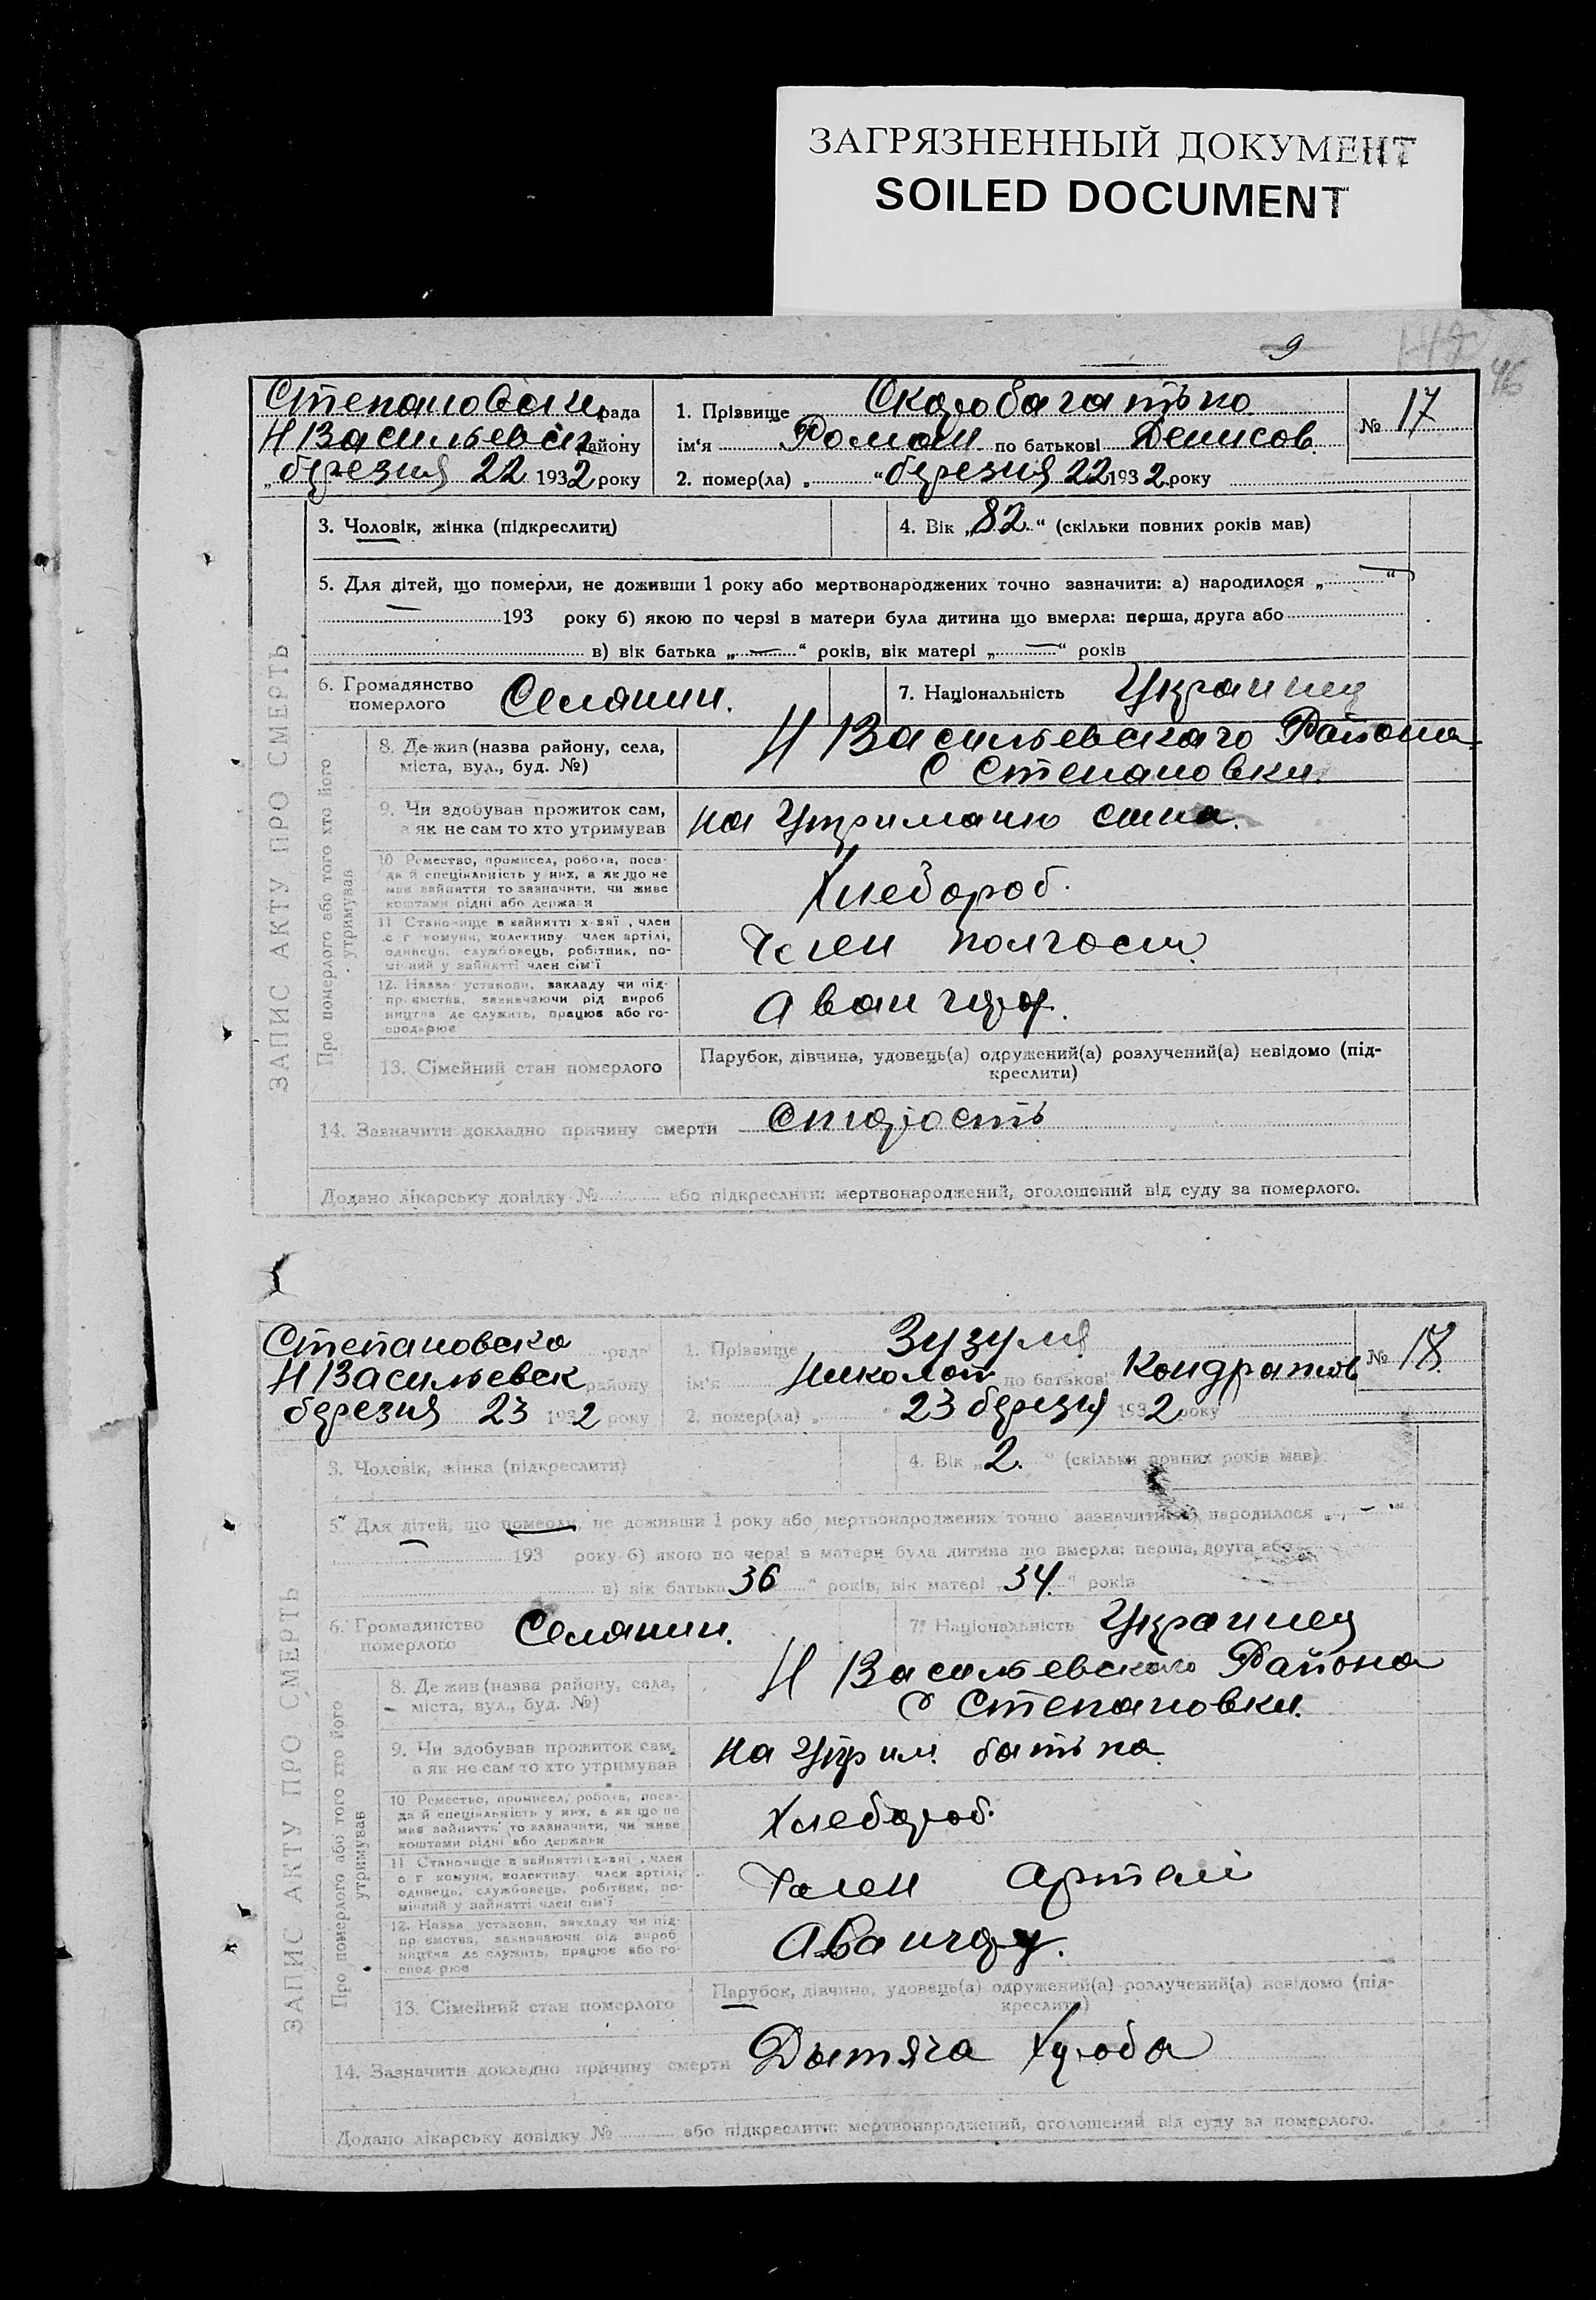 ЗАГРЯЗНЕННЫЙ ДОКУМЕНТ
SOILED DOCUMENT
9
46
Степановски рада
Н Васильевск району
„березня 22 1932 року
1. Прізвище Скоробагатько
ім'я Роман по батькові Денисов.
№ 17
2. помер(ла) „ “ березня 22 1932 року
3. Чоловік, жінка (підкреслити)
4. Вік „82“ (скільки повних років мав)
5. Для дітей, що померли, не доживши 1 року або мертвонароджених точно зазначити: а) народилося „ — “
— 193 року б) якою по черзі в матери була дитина що вмерла: перша, друга або
в) вік батька „ — “ років, вік матері „ — “ років
6. Громадянство померлого Селянин.
7. Національність Украинец
ЗАПИС АКТУ ПРО СМЕРТЬ
Про померлого або того хто його утримував
8. Де жив (назва району, села, міста, вул., буд. №)
Н Васильевского Района
с Степановки.
9. Чи здобував прожиток сам, а як не сам то хто утримував
на Утриманню сина.
10 Ремество, промисел, робота, поса-
да й спеціяльність у них, а як що не
має зайняття то зазначити, чи живе
коштами рідні або держави
Хлебороб.
11 Становище в зайнятті х-ваї , член
с г комуни, колективу член артілі,
одинець, службовець, робітник, по-
мічний у зайнятті член сім'ї
Член колгосп.
12. Назва установи, закладу чи під-
приємства, зазначаючи рід вироб
ництва де служить, працює або го-
сподарює
Авангард.
13. Сімейний стан померлого
Парубок, дівчина, удовець(а) одружений(а) розлучений(а) невідомо (під-
креслити)
14. Зазначити докладно причину смерти Старость
Додано лікарську довідку № або підкреслити: мертвонароджений, оголошений від суду за померлого.
Степановско рада
Н Васильевск району
березня 23 1932 року
1. Прізвище Зузуля
ім'я Николай по батькові Кондратов
№ 18.
2. помер(ла) „ “ 23 березня 1932 року
3. Чоловік, жінка (підкреслити)
4. Вік „2.“ (скільки повних років мав)
5. Для дітей, що померли, не доживши 1 року або мертвонароджених точно зазначити: а) народилося „ — “
193 року б) якою по черзі в матери була дитина що вмерла: перша, друга або
в) вік батька 36 “ років, вік матері „34.“ років
6. Громадянство померлого Селянин.
7. Національність Украинец
ЗАПИС АКТУ ПРО СМЕРТЬ
Про померлого або того хто його утримував
8. Де жив (назва району, села, міста, вул., буд. №)
Н Васильевского Района
с Степановки.
9. Чи здобував прожиток сам, а як не сам то хто утримував
на Утрим. батька
10 Ремество, промисел, робота, поса-
да й спеціяльність у них, а як що не
має зайняття то зазначити, чи живе
коштами рідні або держави
Хлебороб.
11 Становище в зайнятті х-ваї , член
с г комуни, колективу член артілі,
одинець, службовець, робітник, по-
мічний у зайнятті член сім'ї
Член Артелі
12. Назва установи, закладу чи під-
приємства, зазначаючи рід вироб
ництва де служить, працює або го-
сподарює
Авангард.
13. Сімейний стан померлого
Парубок, дівчина, удовець(а) одружений(а) розлучений(а) невідомо (під-
креслити)
14. Зазначити докладно причину смерти Дытяча Хуроба
Додано лікарську довідку № або підкреслити: мертвонароджений, оголошений від суду за померлого.